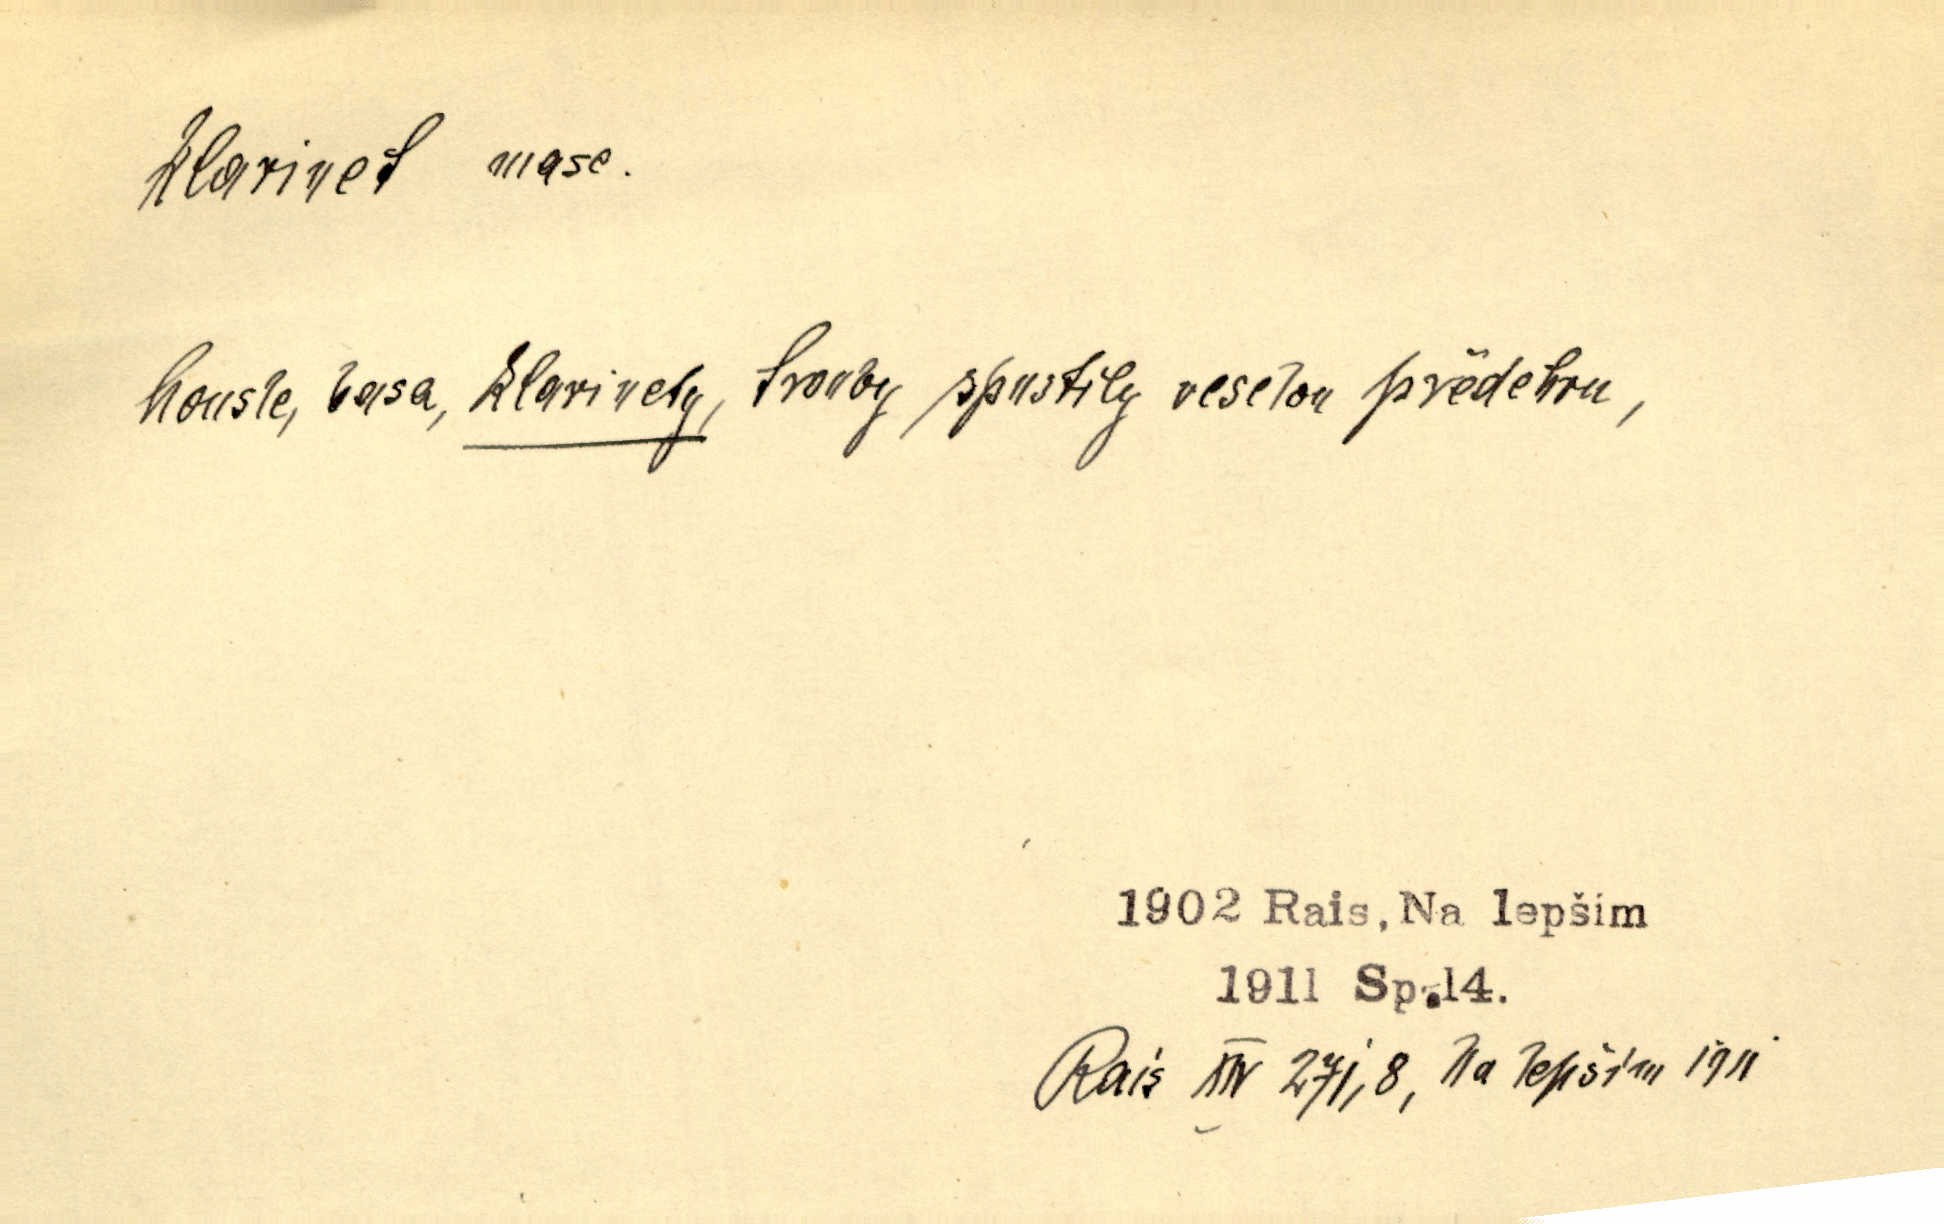 klarinet masc.
housle, basa, klarinety, trouby spustily veselou předehru,
1902 Rais, Na lepším
1911 Sp.14.
Rais XIV 271, 8, Na lepším 1911